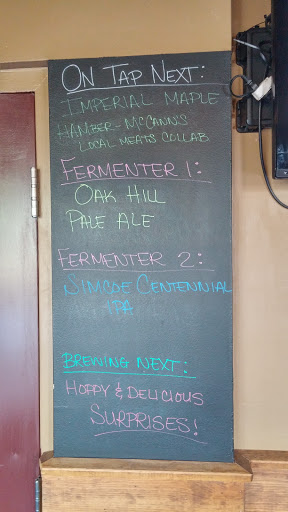 ON TAP NEXT:
IMPERIAL MAPLE
HAMBER-MCCANNS
LOCAL MEATS COLLAB
FERMENTER 1:
OAK HILL
PALE ALE
FERMENTER 2:
SIMCOE CENTENNIAL
IPA
BREWING NEXT:
HOPPY & DELICIOUS
SURPRISES!